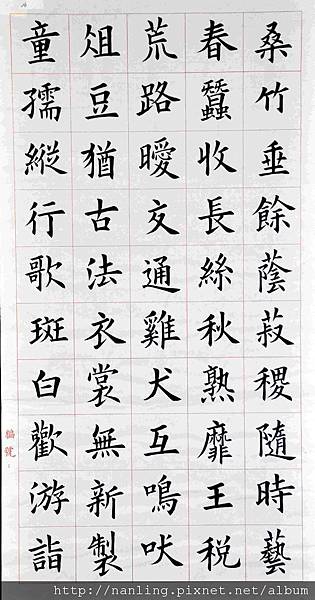 桑竹垂餘蔭菽稷隨時藝
春蠶收長絲秋熟靡王稅
荒路曖交通雞犬互鳴吠
俎豆猶古法衣裳無新製
童孺縱行歌斑白歡游詣
編號：
http://nanling.pixnet.net/album